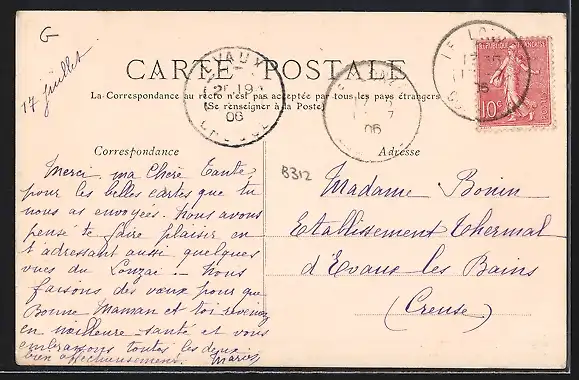 G
17 juillet
CARTE POSTALE
La Correspondance au recto n'est pas acceptée par tous les pays étrangers
(Se renseigner à la Poste)
Correspondance
Merci, ma Chère Tante,
pour les belles cartes que tu
nous as envoyées. Nous avons
pensé te faire plaisir en
t'adressant aussi quelques
vues du Louzai — Nous
faisons des vœux pour que
Bonne Maman et toi reveniez
en meilleure santé et vous
embrassons toutes les deux
bien affectueusement. Marie
B312
Adresse
Madame Bonin
Etablissement Thermal
d'Evaux les Bains
(Creuse)
EVAUX
19
06
CREUSE
06
LE
06
REPUBLIQUE FRANÇAISE
10c